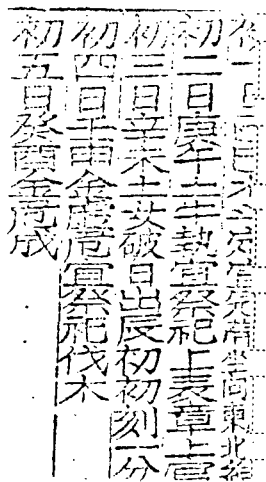 初一日己巳木斗定宜席坐向東北維
初二日庚午土牛執宜祭祀上表章上官
初三日辛未土女破日出辰初初刻一分
初四日壬申金虛危宜祭祀伐木
初五日癸酉金危成